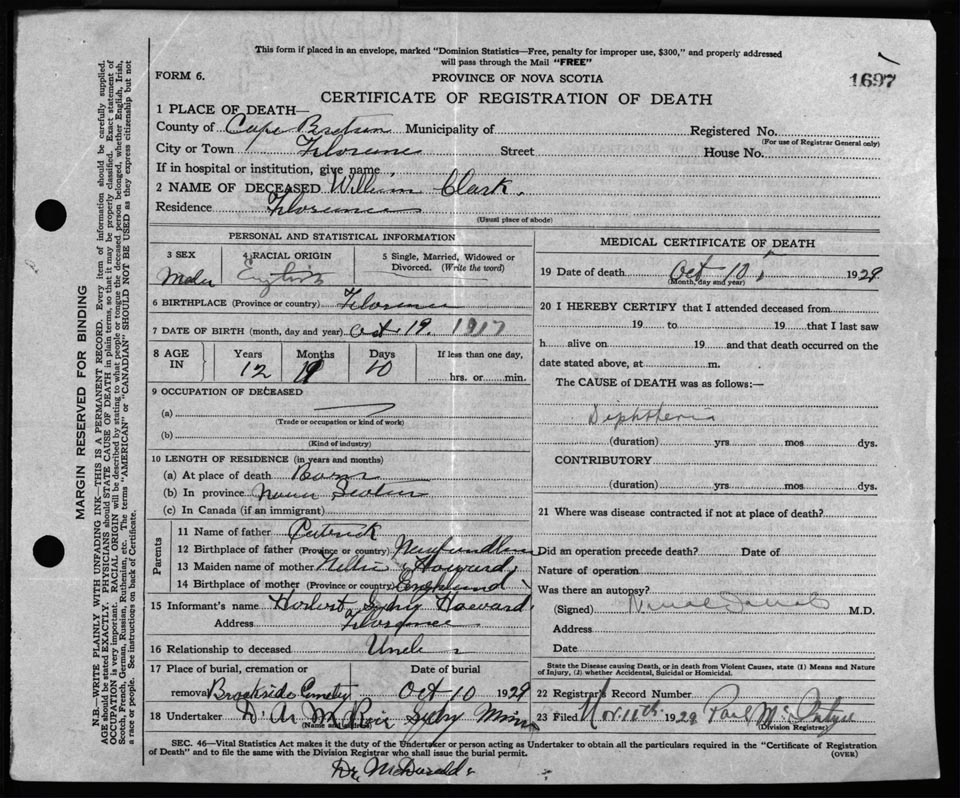 This form if placed in an envelope, marked "Dominion Statistics—Free, penalty for improper use, $300," and properly addressed
will pass through the Mail "FREE"
FORM 6. PROVINCE OF NOVA SCOTIA 1697
CERTIFICATE OF REGISTRATION OF DEATH
1 PLACE OF DEATH—
County of Cape Breton Municipality of Registered No.
(For use of Registrar General only)
City or Town Florence Street House No.
If in hospital or institution, give name
2 NAME OF DECEASED William Clark.
Residence Florence
(Usual place of abode)
PERSONAL AND STATISTICAL INFORMATION
3 SEX 4 RACIAL ORIGIN 5 Single, Married, Widowed or
Divorced. (Write the word)
Male English
6 BIRTHPLACE (Province or country) Florence
7 DATE OF BIRTH (month, day and year) Oct 19. 1917
8 AGE IN Years Months Days If less than one day,
12 20 hrs. or min.
9 OCCUPATION OF DECEASED
(a)
(Trade or occupation or kind of work)
(b)
(Kind of industry)
10 LENGTH OF RESIDENCE (in years and months)
(a) At place of death Born
(b) In province Nova Scotia
(c) In Canada (if an immigrant)
Parents
11 Name of father Patrick
12 Birthplace of father (Province or country) Newfundland
13 Maiden name of mother Nellie Howard
14 Birthplace of mother (Province or country) England
15 Informant's name Herbert Sydny Howard
Address Florence
16 Relationship to deceased Uncle
17 Place of burial, cremation or Date of burial
removal Brookside Cemetry Oct 10 1929
18 Undertaker Sydny Mines
(Name and address)
MEDICAL CERTIFICATE OF DEATH
19 Date of death Oct 10, 1929
(Month, day and year)
20 I HEREBY CERTIFY that I attended deceased from
19 to 19 that I last saw
h alive on 19 and that death occurred on the
date stated above, at m.
The CAUSE of DEATH was as follows:—
Diphtheria
(duration) yrs mos dys.
CONTRIBUTORY
(duration) yrs mos dys.
21 Where was disease contracted if not at place of death?
Did an operation precede death? Date of
Nature of operation
Was there an autopsy?
(Signed) M.D.
Address
Date
State the Disease causing Death, or in death from Violent Causes, state (1) Means and Nature
of Injury, (2) whether Accidental, Suicidal or Homicidal.
22 Registrar's Record Number
23 Filed Nov. 11th. 1929 Paul McIntyre
(Division Registrar)
SEC. 46—Vital Statistics Act makes it the duty of the Undertaker or person acting as Undertaker to obtain all the particulars required in the "Certificate of Registration
of Death" and to file the same with the Division Registrar who shall issue the burial permit. (OVER)
Dr. McDonald
MARGIN RESERVED FOR BINDING
N.B.—WRITE PLAINLY WITH UNFADING INK—THIS IS A PERMANENT RECORD. Every item of information should be carefully supplied.
AGE should be stated EXACTLY. PHYSICIANS should STATE CAUSE OF DEATH in plain terms, so that it may be properly classified. Exact statement of
OCCUPATION is very important. RACIAL ORIGIN will be described by stating to what people or tongue the deceased person belonged, whether English, Irish,
Scotch, French, German, Russian, Ruthenian, etc. The terms "AMERICAN" or "CANADIAN" SHOULD NOT BE USED as they express citizenship but not
a race or people. See instructions on back of Certificate.